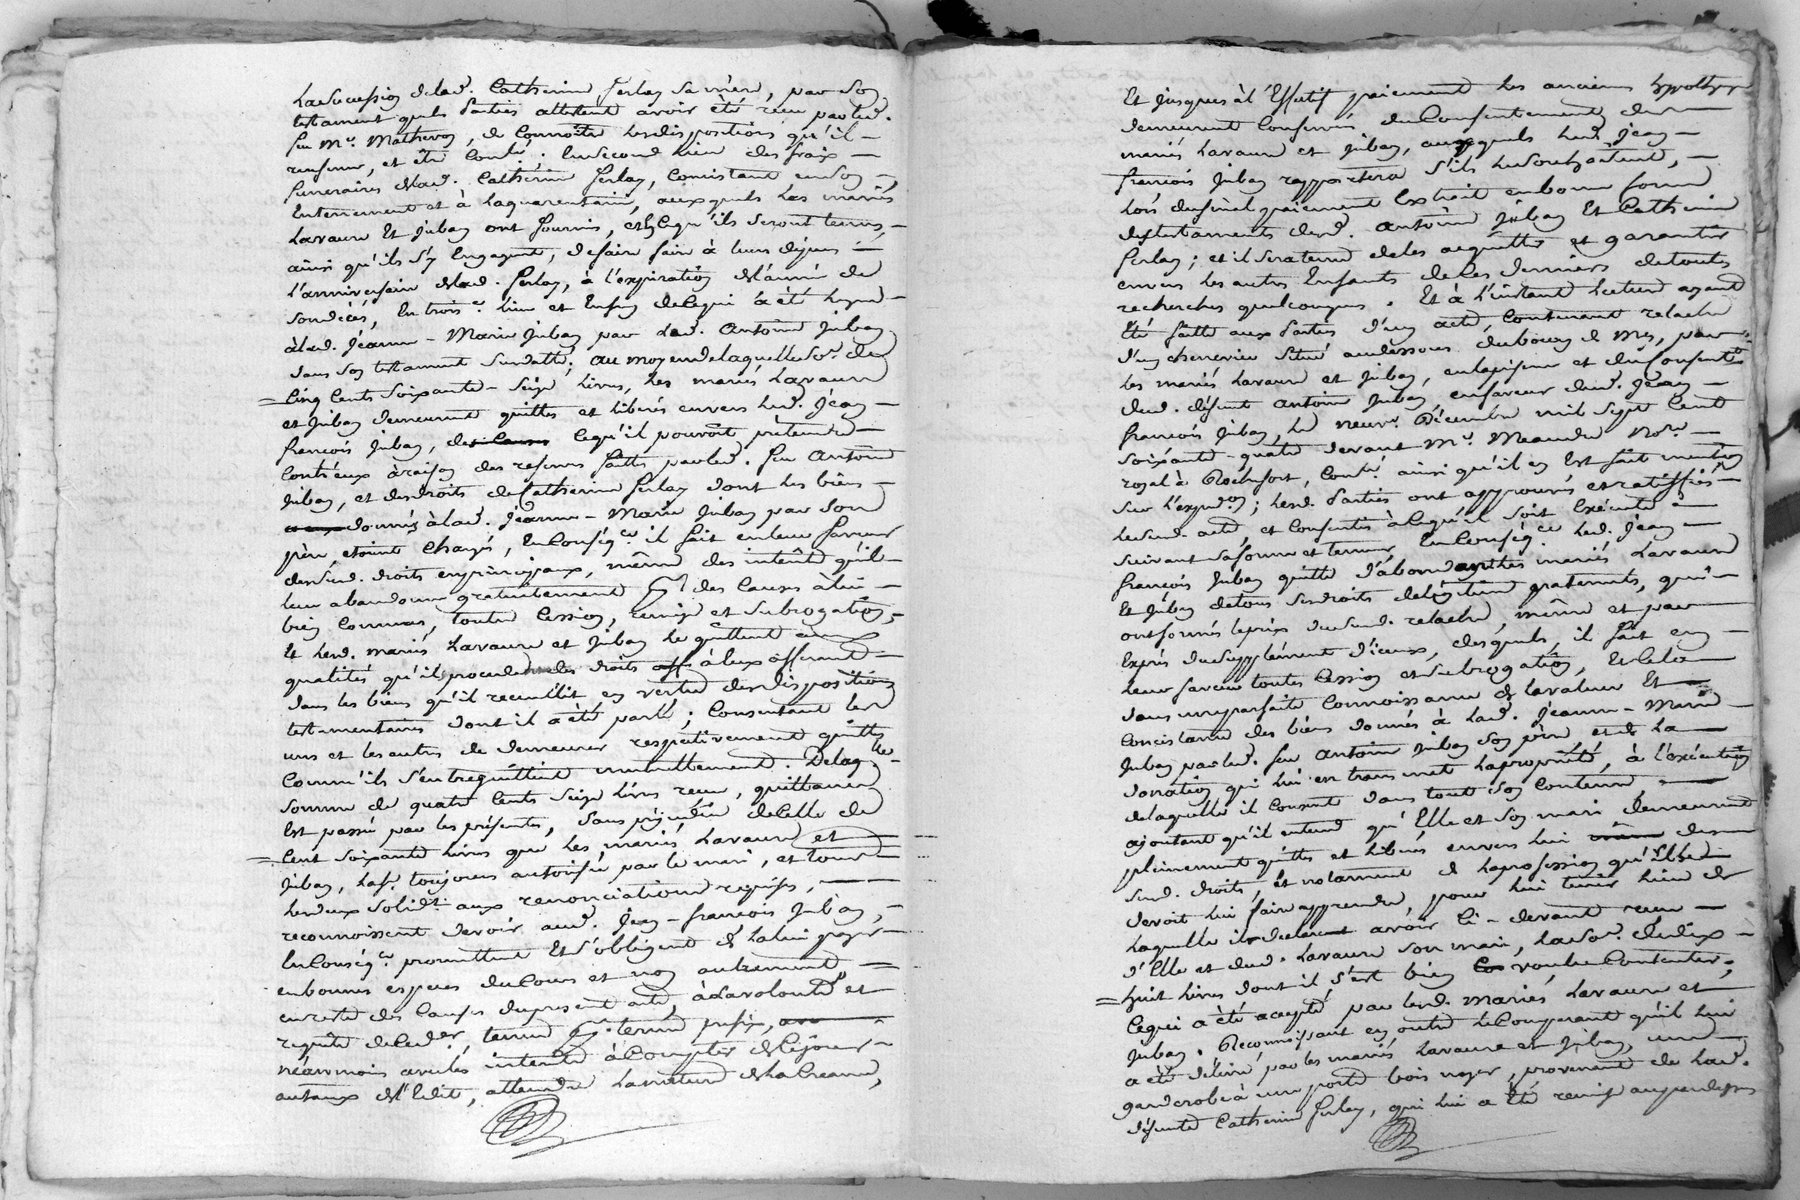 La succession de lad. Catherine Ferlay sa mère, par son
testament que les parties attestent avoir été reçu par led.
feu Me. Mathevon, de connoître les dispositions qu'il
renferme, et être contlé. ; en second lieu des fraix
funeraires de lad. Catherine Ferlay, consistant en son
Enterrement et à la quarentaine, auxquels les mariés
Lavaure Et Jubay ont fourni, et de ce qu'ils seront tenus,
ainsi qu'ils s'y Engagent, de faire faire à leurs dépens
l'anniversaire de lad. Ferlay, à l'expiration de l'année de
son décès, En trois.e lieu et Enfin de ce qui a été legué
à lad. Jeanne-Marie Jubay par led. Antoine Jubay
dans son testament susdatté ; au moyen de laquelle so.e de
Cinq Cents Soixante-Seize livres, les mariés Lavaure
et Jubay demeurent quittes et libérés envers led. Jean
françois Jubay, de ce qu'il pouvoit prétendre
Contr'eux à raison des reserves faittes par led. feu Antoine
Jubay, et des droits de Catherine Ferlay dont les biens
donnés à lad. Jeanne-Marie Jubay par son
père, étoient chargés, En conséq.ce il fait en leur faveur
desd. Susd. droits en principaux, même des intérêts qu'il
leur abandonne gratuitement des causes à lui
bien connues, toutte cession, remise et subrogation,
Et lesd. mariés Lavaure et Jubay le quittent en
qualités qu'il procede des droits à eux afferant
dans les biens qu'il recuëillit en vertu des dispositions
testamentaires dont il a été parlé ; consentant les
uns et les autres de demeurer respectivement quittes
Comm'ils s'entrequittent mutuellement. De laq.lle
Somme de quatre Cents Seize livres reçue, quittance
Est passée par les présentes, sans préjudice de celle de
Cent soixante livres que les mariés Lavaure et
Jubay, lad. toujours autorisée par le mari, et tous
les deux solid.t aux renonciations requises,
reconnoissent devoir aud. Jean-françois Jubay,
En conséq.ce promettent Et s'obligent de la lui payer
en bonnes especes du Cours et non autrement
en reste des Causes du present acte, à la volonté et
requête de ced.er, terme prefix,
néanmois avec les intérêts à compter de ce jour
au taux de l'Edit, attendu la nature de la Creance,
Et jusques à l'Effectif paiement les anciennes hypoteques
demeurent Conservées du Consentement des
mariés Lavaure et Jubay, auxquels led. Jean
françois Jubay rapportera s'ils le souhaitent,
lors du final paiement Extrait en bonne forme
des testaments desd. Antoine Jubay Et Catherine
Ferlay ; et il sera tenu de les acquitter et garantir
envers les autres Enfants de ces derniers de toutes
recherches quelconques. Et à l'instant lecture ayant
Eté faitte aux Parties d'un acte, Contenant relache
d'un chenevier situé audessous du bourg de Mey, par
les mariés Lavaure et Jubay, en la présence et du Consent.t
dud. défunt Antoine Jubay en faveur dud. Jean
françois Jubay, le neuv.e Décembre mil sept cent
soixante-quatre devant Me. Meaudre No.re
royal à Rochefort, Contlé. ainsi qu'il en Est fait mention
sur l'expéd.on ; lesd. Parties ont approuvé et ratiffié
le susd. acte, et consentis à ce qu'il soit Exécuté
suivant sa forme et teneur, En conséq.ce led. Jean
françois Jubay quitte d'abondant les mariés Lavaure
Et Jubay de tous ses droits de légitime paternels, qui
ont formés le prix du susd. relache, même et par
Exprès du supplément d'iceux, desquels, il fait en
leur faveur toutes Cession et subrogation, Et cela
dans une parfaite connoissance de la valeur Et
Consistance des biens donnés à lad. Jeanne-Marie
Jubay par led. feu Antoine Jubay son père et de la
donation qui lui en transmet la propriété, à l'exécution
de laquelle il consent dans tout son Contenu,
ajoutant qu'il entend qu'Elle et son mari demeurent
pleinement quittes et liberés envers lui des
susd. droits, Et notamment de la profession qu'Elle
devoit lui faire apprendre, pour lui tenir lieu de
laquelle il declare avoir ci-devant reçu
d'Elle et dud. Lavaure son mari, la so.e de dix
huit livres dont il s'est bien voulu Contenter,
Ce qui a été accepté par lesd. mariés Lavaure et
Jubay. Reconnoissant en outre le Comparant qu'il lui
a été délivré par les mariés Lavaure et Jubay, une
garderobe à une porte bois noyer, provenant de lad.
défunte Catherine Ferlay, qui lui a Eté remise au par-dessus